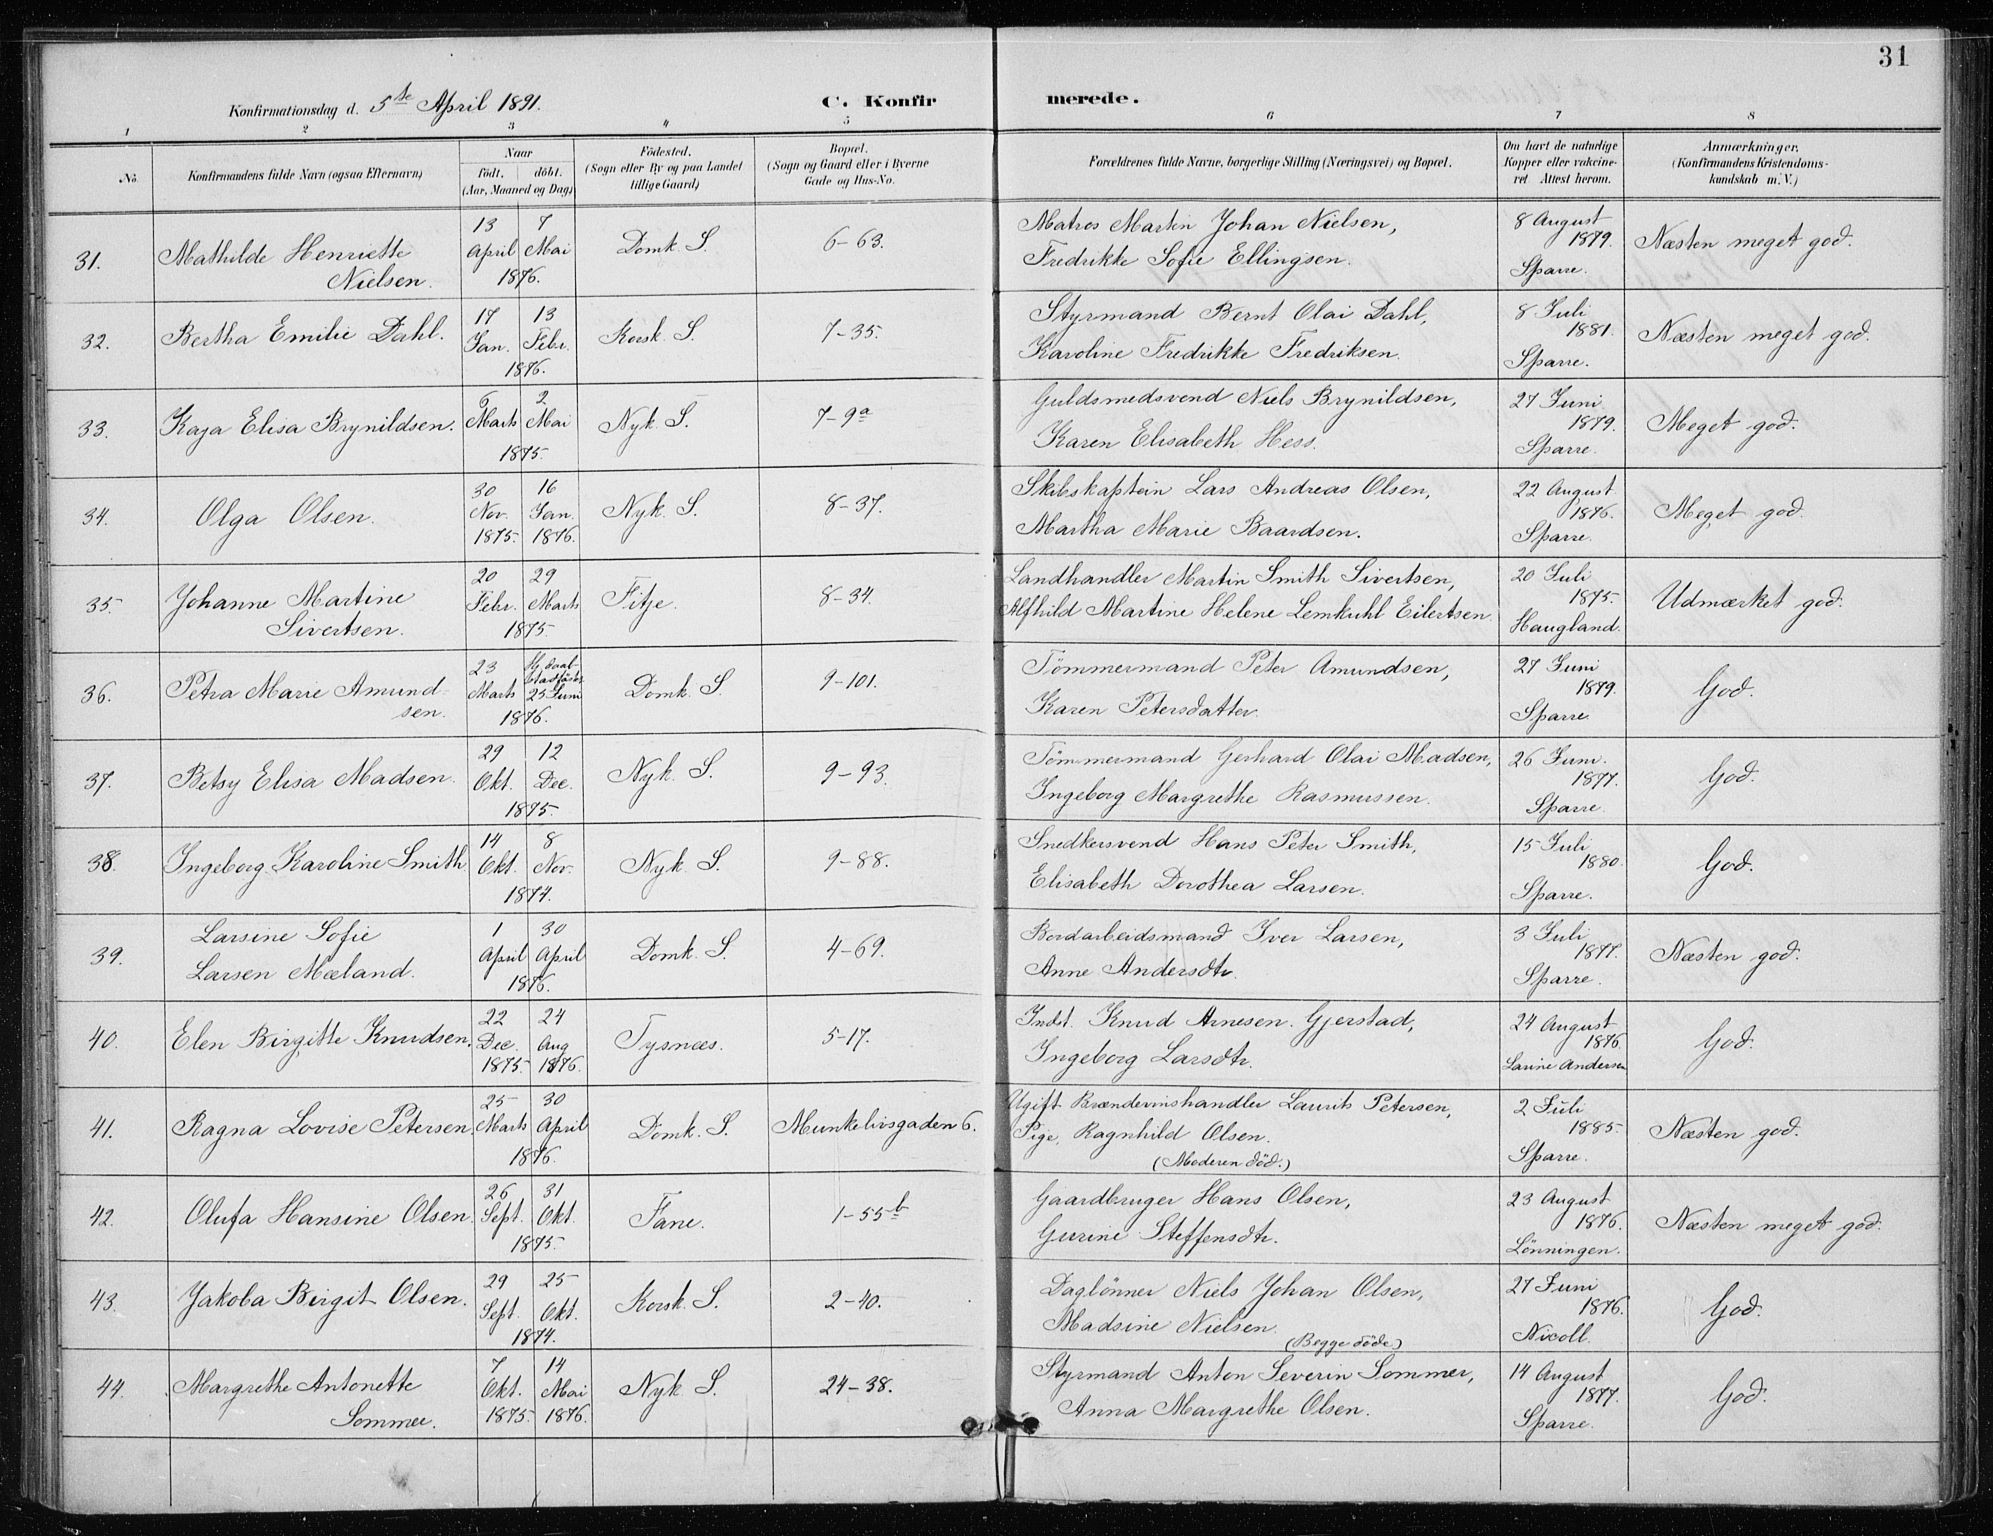 31
Konfirmationsdag d. 5te April 1891.
C. Konfirmerede.
1 2 3 4 5 6 7 8
No. | Konfirmandens fulde Navn (ogsaa Efternavn) | Naar født, døbt. (Aar, Maaned og Dag) | Fødested. (Sogn eller By og paa Landet tillige Gaard) | Bopæl. (Sogn og Gaard eller i Byerne Gade og Hus-No. | Forældrenes fulde Navne, borgerlige Stilling (Næringsvei) og Bopæl. | Om havt de naturlige Kopper eller vakcineret Attest herom. | Anmærkninger. (Konfirmandens Kristendomskundskab m. V.)
31. | Mathilde Henriette Nielsen. | 13 April | 7 Mai 1876. | Domk. S. | 6-63. | Matros Martin Johan Nielsen, Fredrikke Sofie Ellingsen. | 8 August 1879. Sparre. | Næsten meget god.
32. | Bertha Emilie Dahl. | 17 Jan. | 13 Febr. 1876. | Korsk. S. | 7-35. | Styrmand Bernt Olai Dahl, Karoline Fredrikke Fredriksen. | 8 Juli 1881. Sparre. | Næsten meget god.
33. | Kaja Elisa Brynildsen. | 5 Marts | 2 Mai 1875. | Nyk. S. | 7-9a | Guldsmedsvend Niels Brynildsen, Karen Elisabeth Hess. | 27 Juni 1879. Sparre. | Meget god.
34. | Olga Olsen. | 30 Nov. 1875. | 16 Jan. 1876. | Nyk. S. | 8-37. | Skibskaptein Lars Andreas Olsen, Martha Marie Baardsen. | 22 August 1876. Sparre. | Meget god.
35. | Johanne Martine Sivertsen. | 20 Febr. | 29 Marts 1875. | Fitje. | 8-34. | Landhandler Martin Smith Sivertsen, Alfhild Martine Helene Lemkuhl Eilertsen. | 20 Juli 1875. Haugland. | Udmærket god.
36. | Petra Marie Amundsen. | 23 Marts | Hj. daab stadfæst. 25 Juni 1876. | Domk. S. | 9-101. | Tömmermand Peter Amundsen, Karen Petersdatter. | 27 Juni 1879. Sparre. | God.
37. | Betsy Elisa Madsen. | 29 Okt. | 12 Dec. 1875. | Nyk. S. | 9-93. | Tömmermand Gerhard Olai Madsen, Ingeborg Margrethe Rasmussen. | 26 Juni. 1877. Sparre. | God.
38. | Ingeborg Karoline Smith. | 14 Okt. | 8 Nov. 1874. | Nyk. S. | 9-88. | Snedkersvend Hans Peter Smith, Elisabeth Dorothea Larsen. | 15 Juli 1880. Sparre. | God.
39. | Larsine Sofie Larsen Mæland. | 1 April | 30 April 1876. | Domk. S. | 4-69. | Bordarbeidsmand Iver Larsen, Anne Andersdtr. | 3 Juli 1877. Sparre. | Næsten god.
40. | Elen Birgitte Knudsen. | 22 Dec. 1875. | 24 Aug 1876. | Tysnæs. | 5-17. | Indst. Knud Arnesen Gjerstad, Ingeborg Larsdtr. | 24 August 1876. Larine Andersen | God.
41. | Ragna Lovise Petersen. | 25 Marts | 30 April 1876. | Domk. S. | Munkelivsgaden 6. | Ugift Brændevinshandler Laurits Petersen, Pige, Ragnhild Olsen. (Moderen död.) | 2 Juli 1885. Sparre. | Næsten god.
42. | Olufa Hansine Olsen. | 26 Sept. | 31 Okt. 1875. | Fane. | 1-55b | Gaardbruger Hans Olsen, Gurine Steffensdtr. | 23 August 1876. Lönningen. | Næsten meget god.
43. | Jakoba Birgit Olsen. | 29 Sept. | 25 Okt. 1874. | Korsk. S. | 2-40. | Daglönner Niels Johan Olsen, Madsine Nielsen. (Begge döde) | 27 Juni 1876. Nicoll. | God.
44. | Margrethe Antonette Sommer. | 7 Okt. 1875. | 14 Mai 1876. | Nyk. S. | 24-38. | Styrmand Anton Severin Sommer, Anna Margrethe Olsen. | 14 August 1877. Sparre. | God.